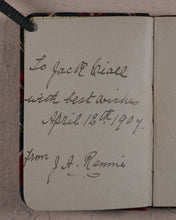 To Jack Niall
with best wishes
April 13th. 1907.
from
J. A. Rennie